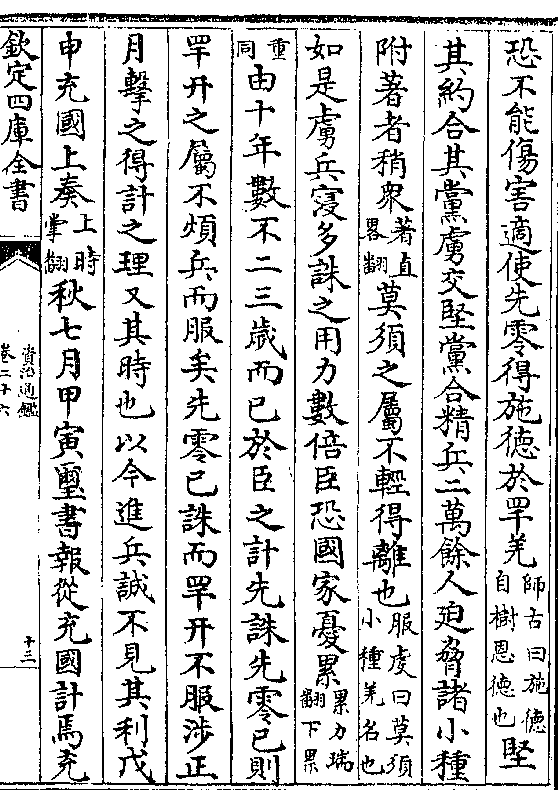 恐不能傷害適使先零得施徳於罕羌師古曰施德自樹恩德也堅
其約合其黨虜交堅黨合精兵二萬餘人廹脅諸小種
附著者稍衆著直畧翻莫須之屬不輕得離也服䖍曰莫須小種羌名也
如是虜兵寖多誅之用力數倍臣恐國家憂累累力瑞翻下累
重同由十年數不二三歲而已於臣之計先誅先零已則
罕幵之屬不煩兵而服矣先零已誅而罕幵不服涉正
月擊之得計之理又其時也以今進兵誠不見其利戊
申充國上奏上時掌翻秋七月甲寅璽書報從充國計焉充
欽定四庫全書
資治通鑑
卷二十六
十三